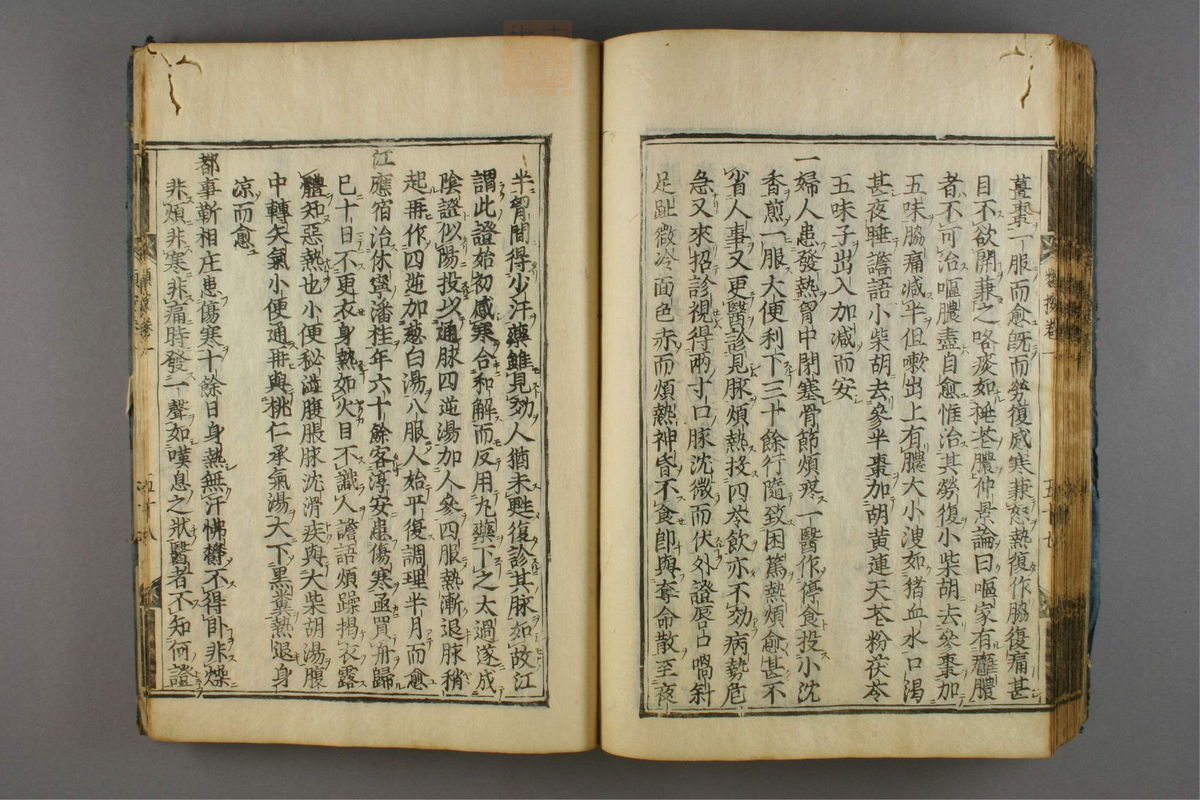 薑棗一服而愈既而勞復感寒兼怒熱復作脇復痛甚
目不欲開兼之咯痰如桃花膿仲景論曰嘔家有癰膿
者不可治嘔膿盡自愈惟治其勞復小柴胡去參棗加
五味脇痛減半但嗽出上有膿大小溲如猪血水口渴
甚夜睡譫語小柴胡去參半棗加胡黄連天花粉茯苓
五味子出入加減而安
一婦人患發熱胷中閉塞骨節煩疼一醫作停食投小沈
香煎一服大便利下三十餘行隨致困篤熱煩愈甚不
省人事又更醫診見脉煩熱投四苓飲亦不効病勢危
急又來招診視得兩寸口脉沈微而伏外證唇口喎斜
足趾微冷面色赤而煩熱神昏不食即與奪命散至夜
半胷間得少汗藥雖見効人猶未甦復診其脉如故江
謂此證始初感寒合和解而反用丸藥下之太過遂成
陰證似陽投以通脉四逆湯加人參四服熱漸退脉稍
起再作四逆加葱白湯八服人始平復調理半月而愈
江應宿治休寧潘桂年六十餘客淳安患傷寒亟買舟歸
已十日不更衣身熱如火目不識人譫語煩躁揭衣露
體知惡熱也小便秘澁腹脹脉沈滑疾與大柴胡湯腹
中轉矢氣小便通再與桃仁承氣湯大下黒糞熱退身
凉而愈
都事靳相庄患傷寒十餘日身熱無汗怫欝不得卧非燥
非煩非寒非痛時發一聲如嘆息之狀醫者不知何證